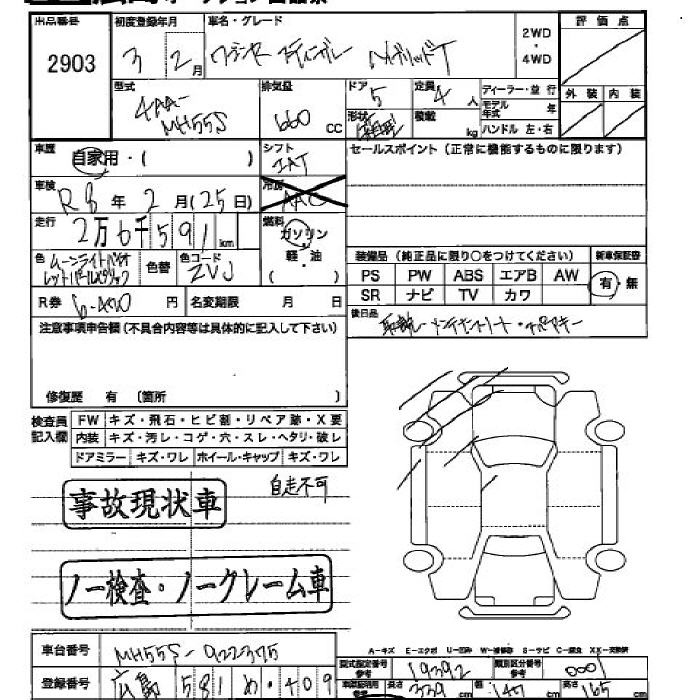 出品番号 初度登録年月 車名・グレード 2WD ・ 4WD 評価点
2903 3 2月
型式 排気量 ドア 定員 ディーラー・並行 外装 内装
4AA-MH55S 660 CC 5 4人 モデル年式 年
形状 箱型 積載 kg ハンドル 左・右
車歴 自家用・( ) シフト IAT セールスポイント(正常に機能するものに限ります)
車検 R8年2月(25日) 冷房 AAC
走行 2万6千591km 燃料 ガソリン
軽・油
( )
色 ムーンライトバイオレットパールメタリック 色替 色コード ZVJ
装備品(純正品に限り○をつけてください) 新車保証書
PS PW ABS エアB AW 有・無
SR ナビ TV カワ
R券 円 名変期限 月 日
後日品 取説
注意事項申告欄(不具合内容等は具体的に記入して下さい)
修復歴 有 〔箇所 〕
検査員記入欄 FW キズ・飛石・ヒビ割・リペア跡・X要
内装 キズ・汚レ・コゲ・穴・スレ・ヘタリ・破レ
ドアミラー キズ・ワレ ホイール・キャップ キズ・ワレ
自走不可
事故現状車
ノー検査・ノークレーム車
A-キズ E-エクボ U-凹み W-補修跡 S-サビ C-腐食 XX-交換済
車台番号 MH55S-922375
型式指定番号 参考 19392 類別区分番号 参考 0001
登録番号 広島 581 め・409
長さ 339cm 幅 147cm 高さ 165cm